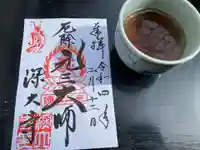 奉拝 令和四年
二月十二日
厄除元三大師
深大寺